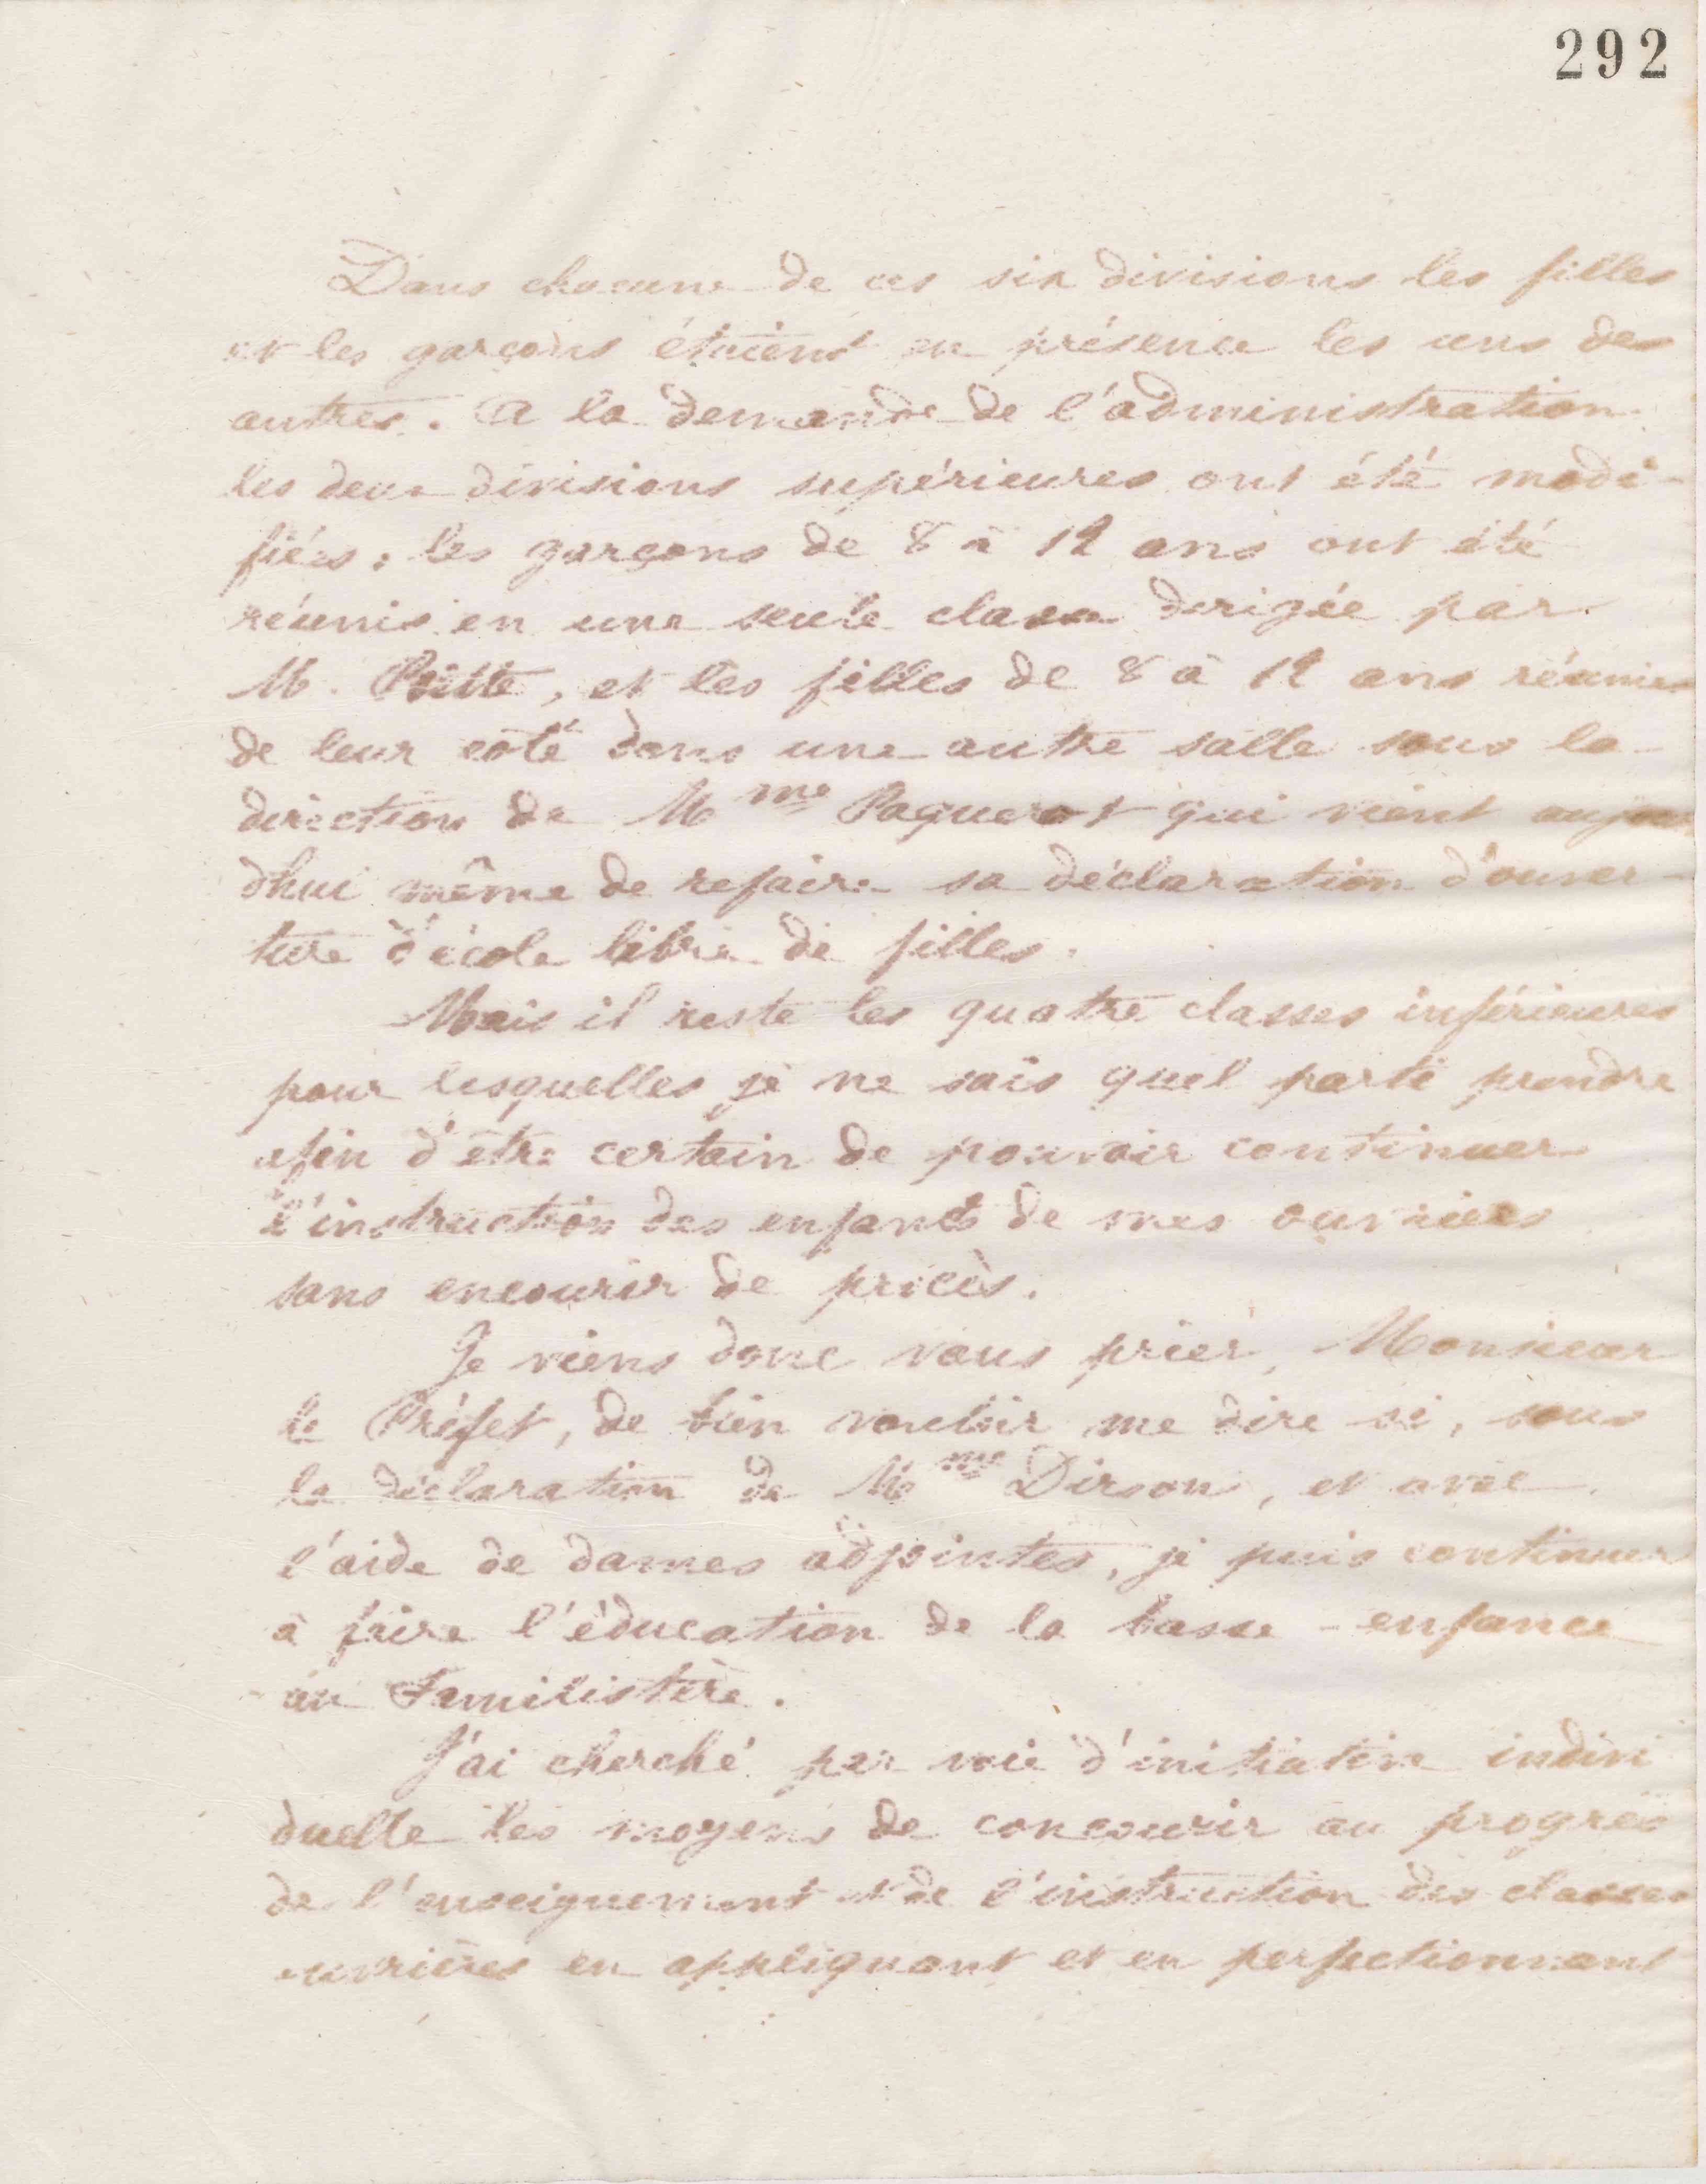 292
Dans chacune de ces six divisions les filles
et les garçons étaient en présence les uns des
autres. A la demande de l'administration
les deux divisions supérieures ont été modi-
fiées; les garçons de 8 à 12 ans ont été
réunis en une seule classe dirigée par
M. Poitte, et les filles de 8 à 12 ans réunies
de leur côté dans une autre salle sous la
direction de Mme Paquerot qui vient aujour
d'hui même de refaire sa déclaration d'ouver-
ture d'école libre de filles.
Mais il reste les quatre classes inférieures
pour lesquelles je ne sais quel parti prendre
afin d'être certain de pouvoir continuer
l'instruction des enfants de mes ouvriers
sans encourir de procès.
Je viens donc vous prier, Monsieur
le Préfet, de bien vouloir me dire si, sous
la déclaration de Mme Dirson, et avec
l'aide de dames adjointes, je puis continuer
à faire l'éducation de la basse-enfance
au Familistère.
J'ai cherché par voie d'initiative indivi
duelle les moyens de concourir au progrès
de l'enseignement et de l'instruction des classes
ouvrières en appliquant et en perfectionnant